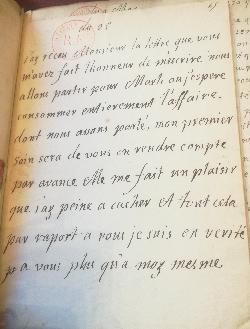 du 05
j'ay receu Monsieur la lettre que vous
m'avez fait l'honneur de m'escrire nous
allons partir pour Marly ou j'espere
consommer entierement l'affaire
dont nous avons parlé, mon premier
soin sera de vous en rendre compte
par avance elle me fait un plaisir
que j'ay peine a cacher et tout cela
par raport a vous je suis en verité
a vous plus qu'a moy mesme